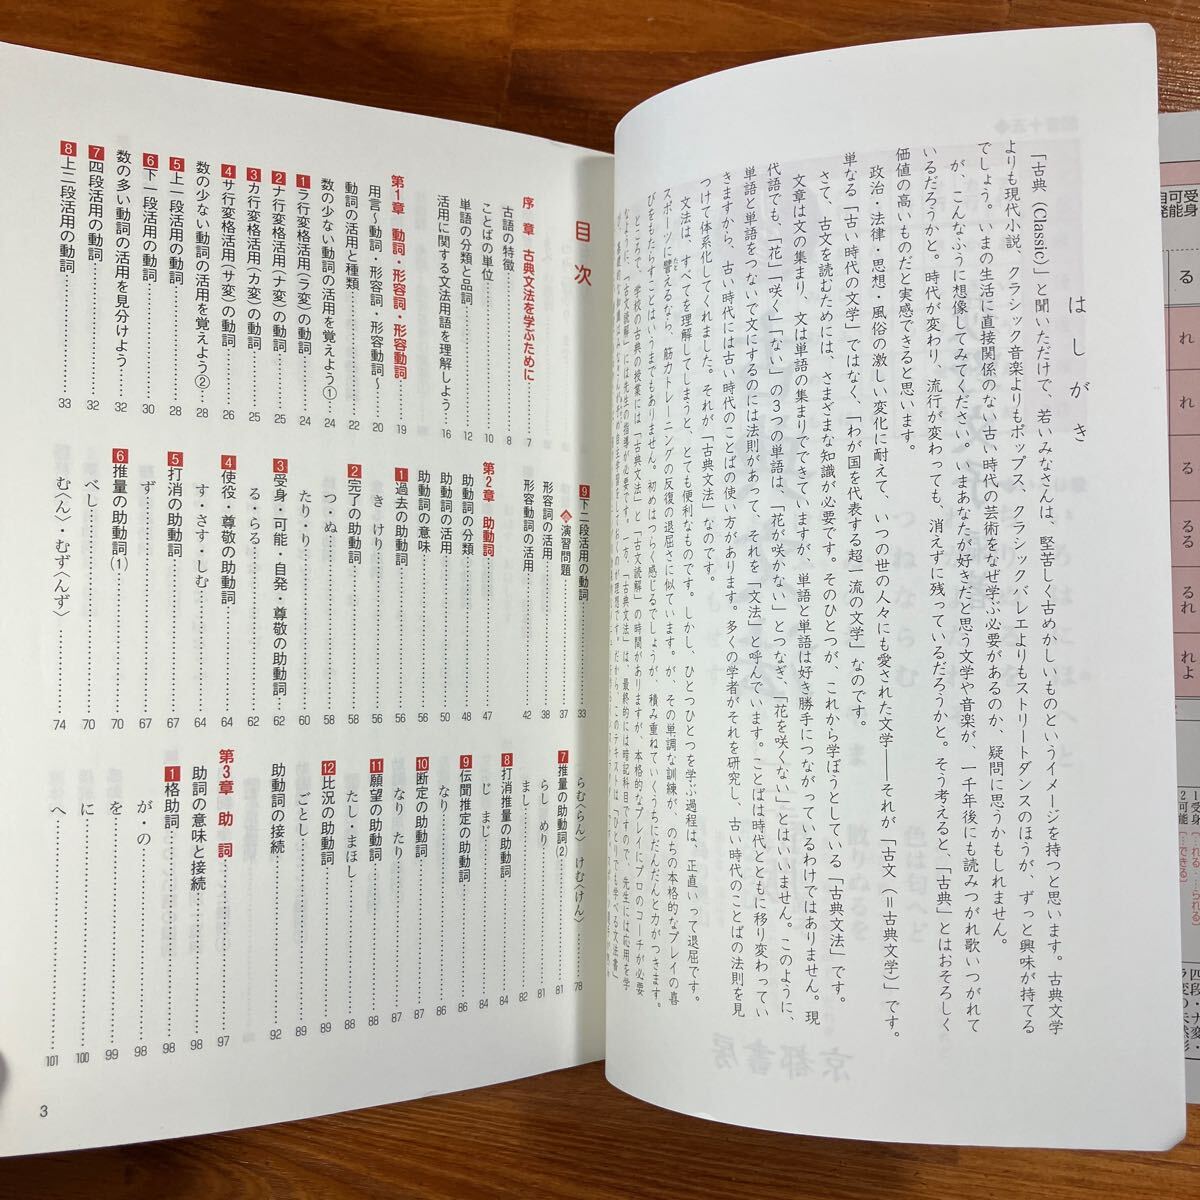 はしがき
「古典(Classic)」と聞いただけで、若いみなさんは、堅苦しく古めかしいものというイメージを持つと思います。古典文学
よりも現代小説、クラシック音楽よりもポップス、クラシックバレエよりもストリートダンスのほうが、ずっと興味が持てる
でしょう。いまの生活に直接関係のない古い時代の芸術をなぜ学ぶ必要があるのか、疑問に思うかもしれません。
が、こんなふうに想像してみてください。いまあなたが好きだと思う文学や音楽が、一千年後にも読みつがれ歌いつがれて
いるだろうかと。時代が変わり、流行が変わっても、消えずに残っているだろうかと。そう考えると、「古典」とはおそろしく
価値の高いものだと実感できると思います。
政治・法律・思想・風俗の激しい変化に耐えて、いつの世の人々にも愛された文学――それが「古文(=古典文学)」です。
単なる「古い時代の文学」ではなく、「わが国を代表する超一流の文学」なのです。
さて、古文を読むためには、さまざまな知識が必要です。そのひとつが、これから学ぼうとしている「古典文法」です。
文章は文の集まり、文は単語の集まりでできていますが、単語と単語は好き勝手につながっているわけではありません。現
代語でも、「花」「咲く」「ない」の3つの単語は、「花が咲かない」とつなぎ、「花を咲くない」とはいいません。このように、
単語と単語をつないで文にするのには法則があって、それを「文法」と呼んでいます。ことばは時代とともに移り変わってい
きますから、古い時代には古い時代のことばの使い方があります。多くの学者がそれを研究し、古い時代のことばの法則を見
つけて体系化してくれました。それが「古典文法」なのです。
文法は、すべてを理解してしまうと、とても便利なものです。しかし、ひとつひとつを学ぶ過程は、正直いって退屈です。
スポーツに譬えるなら、筋力トレーニングの反復の退屈さに似ています。が、その単調な訓練が、のちの本格的なプレイの喜
びをもたらすことはいうまでもありません。初めはつらく感じるでしょうが、積み重ねていくうちにだんだんと力がつきます。
ところで、学校の古典の授業には「古典文法」と「古文読解」の時間がありますが、本格的なプレイにプロのコーチが必要
なように、「古文読解」には先生の指導が必要です。一方、「古典文法」は、最終的には暗記科目ですので、先生には応用を学
京都書房
目次
序章 古典文法を学ぶために……7
古語の特徴……8
ことばの単位……10
単語の分類と品詞……12
活用に関する文法用語を理解しよう……16
第1章 動詞・形容詞・形容動詞……19
用言〜動詞・形容詞・形容動詞〜……20
動詞の活用と種類……22
数の少ない動詞の活用を覚えよう①……24
1 ラ行変格活用(ラ変)の動詞……24
2 ナ行変格活用(ナ変)の動詞……25
3 カ行変格活用(カ変)の動詞……24
4 サ行変格活用(サ変)の動詞……26
数の少ない動詞の活用を覚えよう②……28
5 上一段活用の動詞……28
6 下一段活用の動詞……30
数の多い動詞の活用を見分けよう……32
7 四段活用の動詞……32
8 上二段活用の動詞……33
9 下二段活用の動詞……33
演習問題……37
形容詞の活用……38
形容動詞の活用……42
第2章 助動詞……47
助動詞の分類……48
助動詞の活用……50
助動詞の意味……56
1 過去の助動詞……56
き・けり……56
2 完了の助動詞……58
つ・ぬ……58
たり・り……60
3 受身・可能・自発・尊敬の助動詞……62
る・らる……62
4 使役・尊敬の助動詞……64
す・さす・しむ……64
5 打消の助動詞……67
ず……67
6 推量の助動詞(1)……70
べし……70
む〈ん〉・むず〈んず〉……74
らむ〈らん〉 けむ〈けん〉……78
7 推量の助動詞(2)……81
らし めり……81
まし……82
8 打消推量の助動詞……84
じ まじ……84
9 伝聞推定の助動詞……86
なり……86
10 断定の助動詞……87
なり たり……87
11 願望の助動詞……88
たし・まほし……88
12 比況の助動詞……89
ごとし……89
助動詞の接続……92
第3章 助詞……97
助詞の意味と接続……98
1 格助詞……98
が・の……98
を……99
に……100
へ……101
3